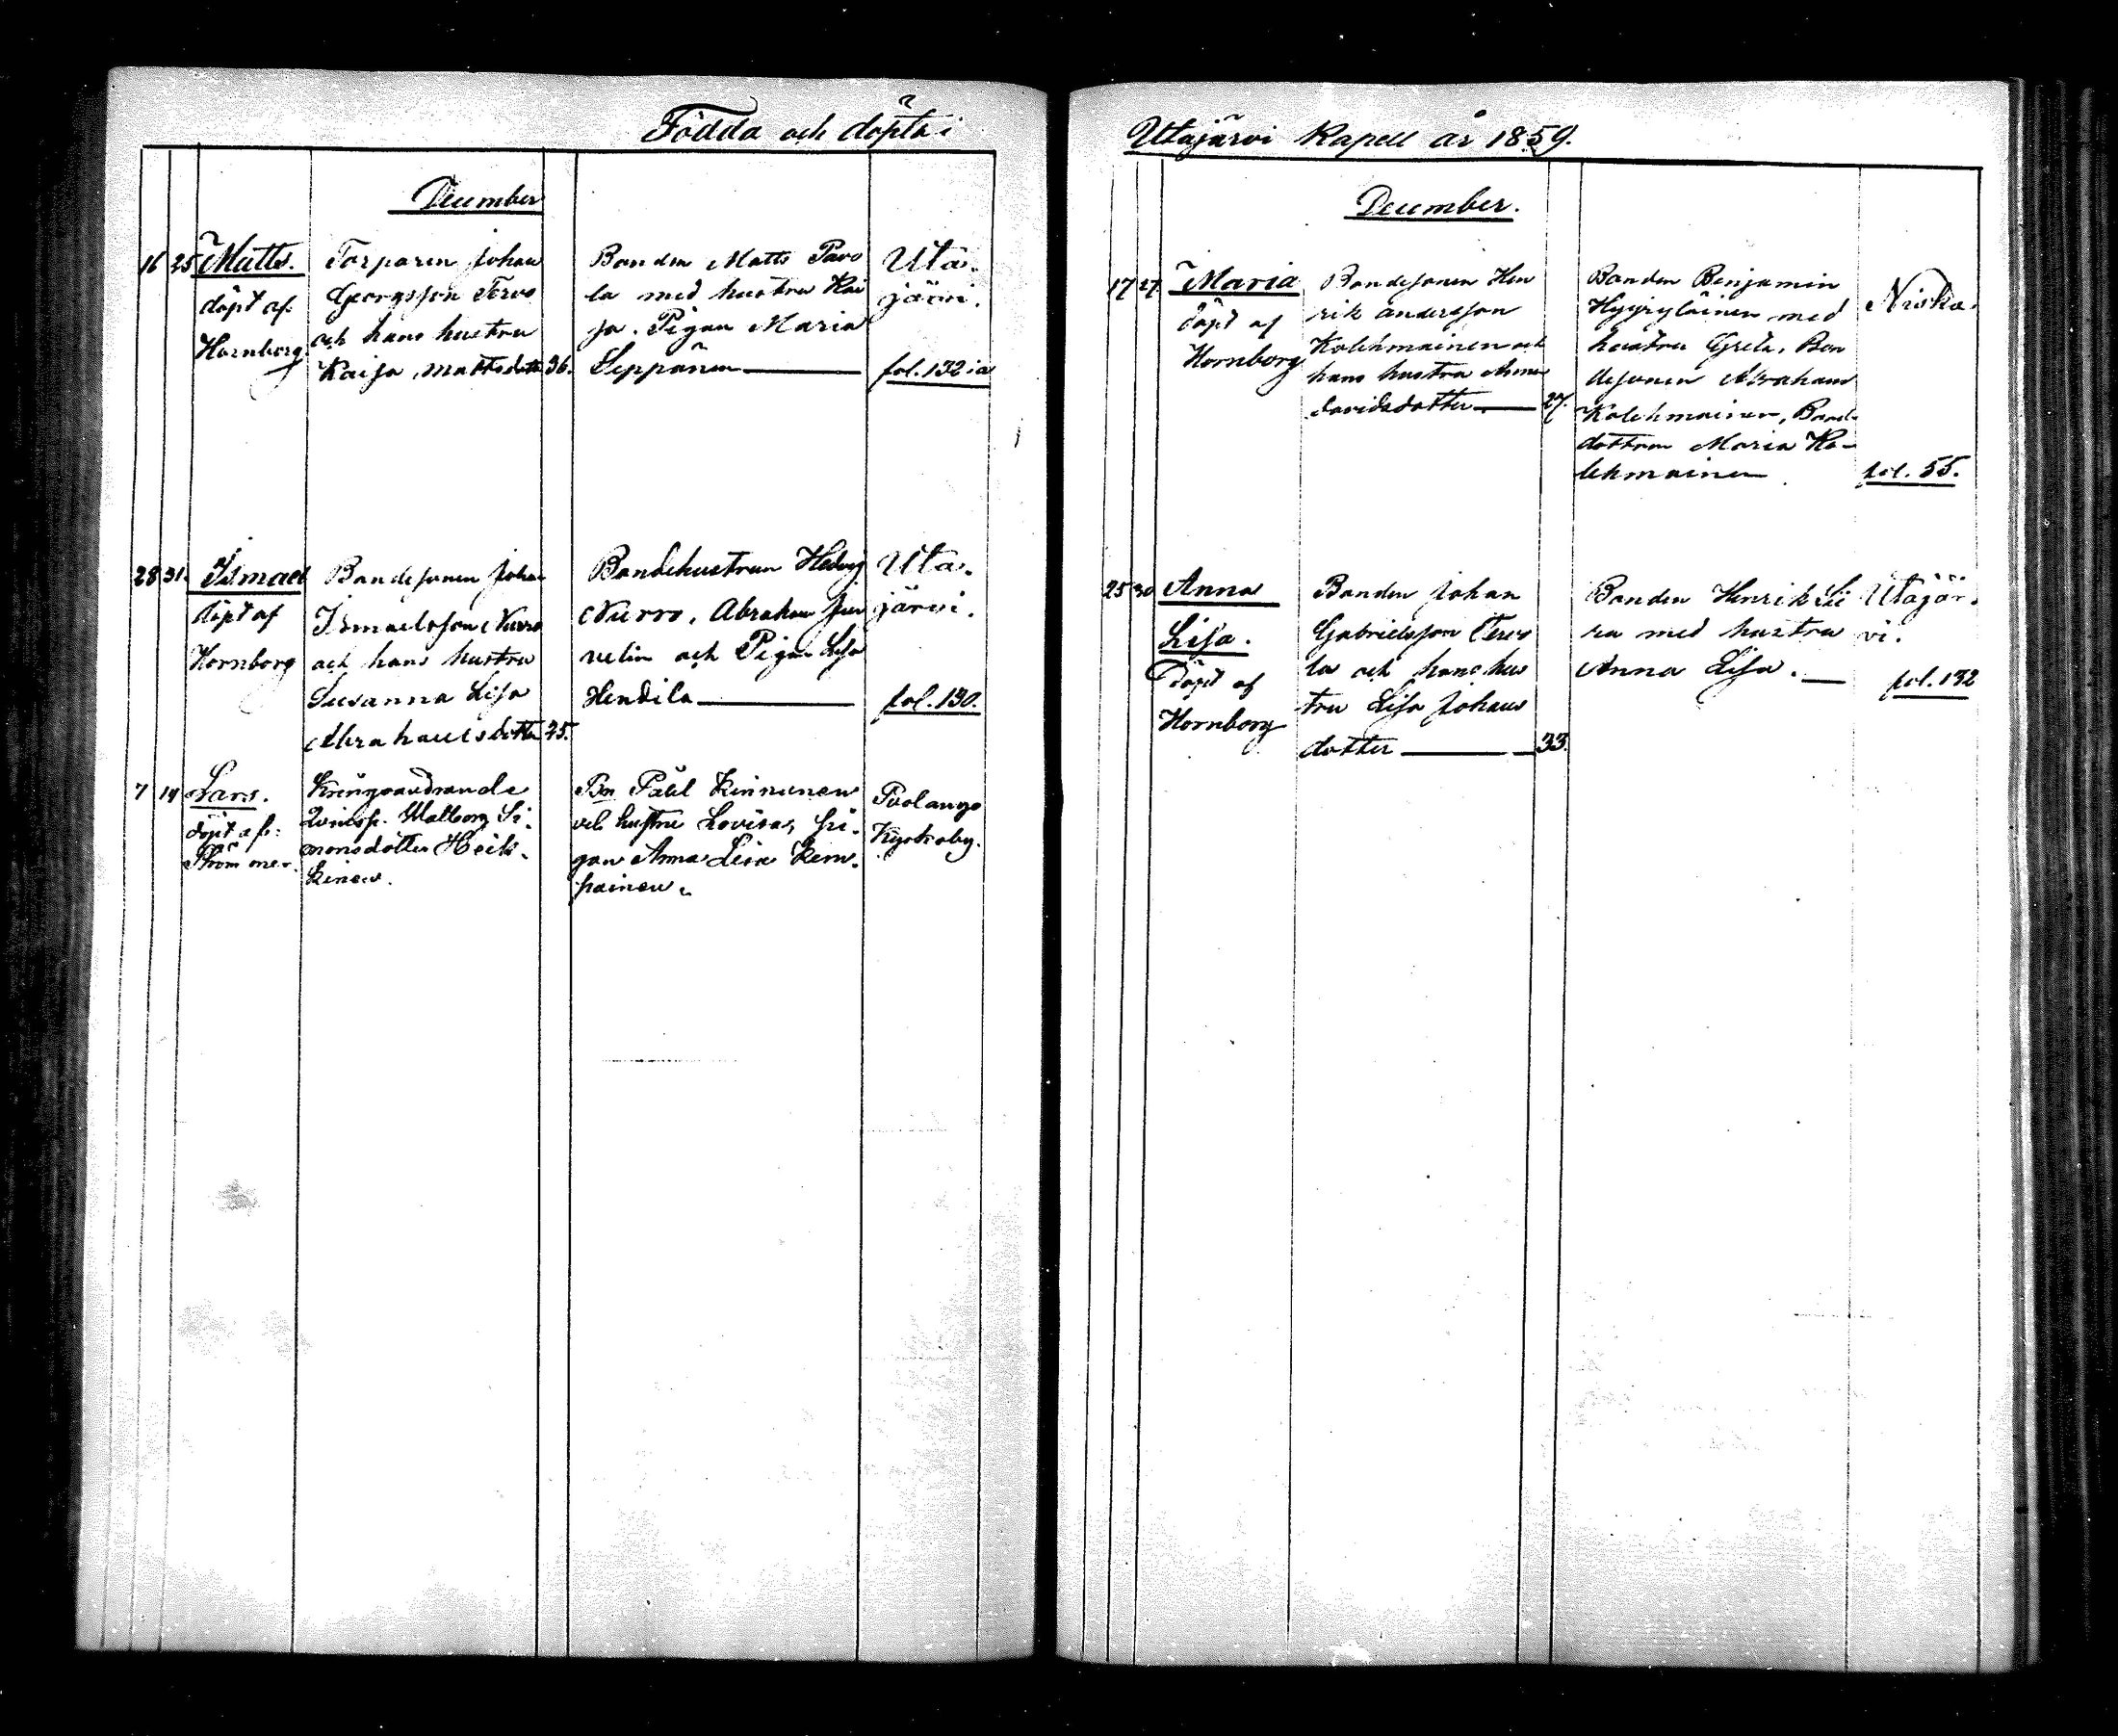 Födda och döpta i
December
16 25 Matts.
döpt af
Hornborg
Torparen Johan
Georgsson Tervo
och hans hustru
Kaisa Mattsdott. 36.
Bonden Matts Pavo
la med hustru Kai
sa. Pigan Maria
Seppänen
Uta-
järvi.
fol. 132 ia
28 31. Ismael
döpt af
Hornborg
Bondesonen Johan
Ismaelsson Nurro
och hans hustru
Susanna Lisa
Abrahamsdotter 25.
Bondehustrun Hedvig
Nurro, Abraham Jur
velin och Pigan Lisa
Hendila
Uta-
järvi.
fol. 130.
7 14 Lars.
döpt af
Kringvandrande
Qvinsp. Walborg Si-
monsdotter Heik-
kinen.
Bn Påhl Kinnunen
och hustru Lovisa, Pi-
gan Anna Lisa Kem-
painen.
Puolango
Kyrkoby.
Utajärvi Kapell år 1859.
December.
17 27. Maria
döpt af
Hornborg
Bondesonen Hen
rik Andersson
Kolehmainen och
hans hustru Anna
Davidsdotter 27.
Bonden Benjamin
Hyyryläinen med
hustru Greta, Bon
desonen Abraham
Kolehmainen, Bond-
dottren Maria Ko-
lehmainen
Niska.
fol. 55.
25 30 Anna
Lisa.
döpt af
Hornborg
Bonden Johan
Gabrielsson Tervo
la och hans hus
tru Lisa Johans
dotter 33.
Bonden Henrik Sii
ra med hustru
Anna Lisa.
Utajär-
vi.
fol. 132